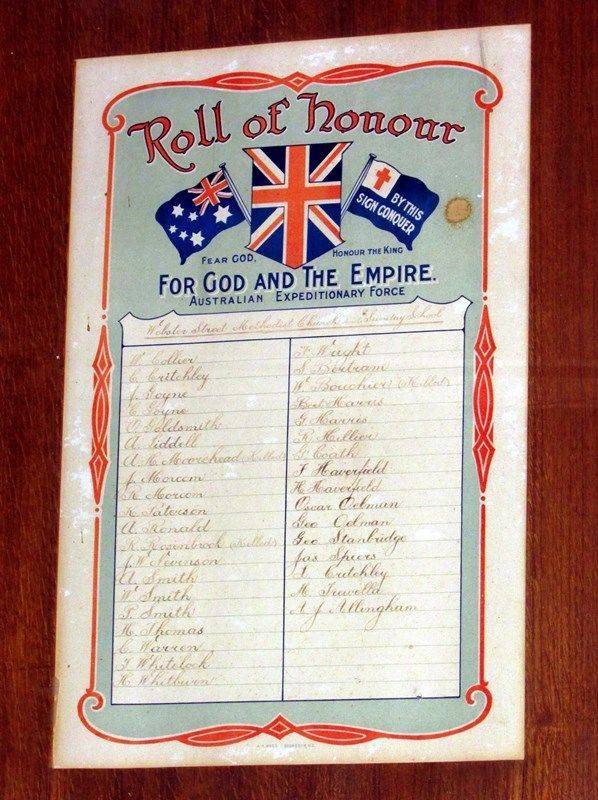 Roll of Honour
BY THIS
SIGN CONQUER
FEAR GOD.
HONOUR THE KING
FOR GOD AND THE EMPIRE.
AUSTRALIAN EXPEDITIONARY FORCE
Webster Street Methodist Church Sunday School
W. Collier
C. Critchley
J. Goyne
C. Goyne
Goldsmith
A. Liddell
A. H. Moorehead (Killed)
J. Morcom
Morcom
Paterson
A. Ronald
R. Rosenbrock (Killed)
J. W. Stevenson
A. Smith
Wm Smith
P. Smith
H. Thomas
C. Warren
J. Whitelock
H. Whitburn
F. Wright
S. Bertram
Wm Bouchier (Killed)
Bert Harris
G. Harris
R. Hillier
Coath
F. Haverfield
H. Haverfield
Oscar Oelman
Geo Oelman
Geo Stanbridge
Jas Speirs
Critchley
M. Trewella
A. J. Allingham